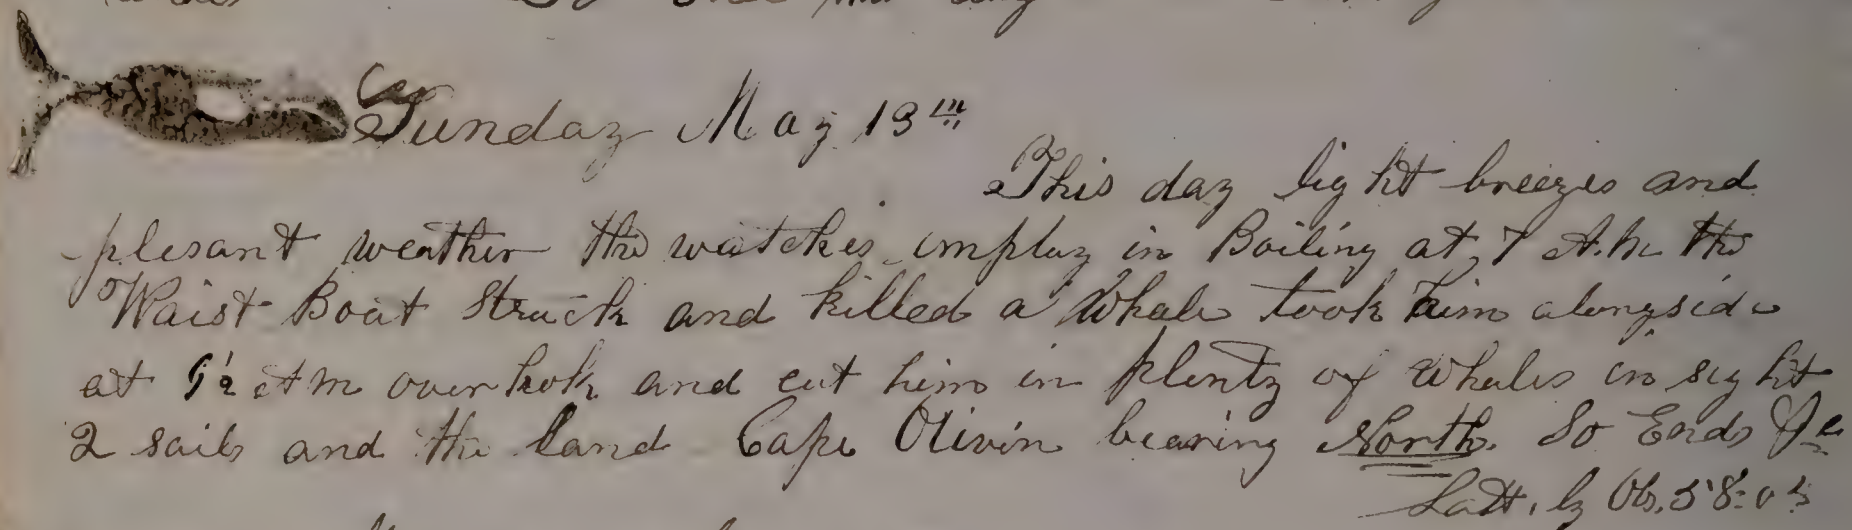 Sunday May 13th
This day light breezes and
plesant weather the watches employ in Boiling at 7 A.M. the
Waist Boat Struck and killed a Whale took him alongside
at 9½ AM overhook and cut him in plenty of Whales in sight
2 sails and the land Cape Olivin bearing North. So Ends
Latt. by Obs. 58: